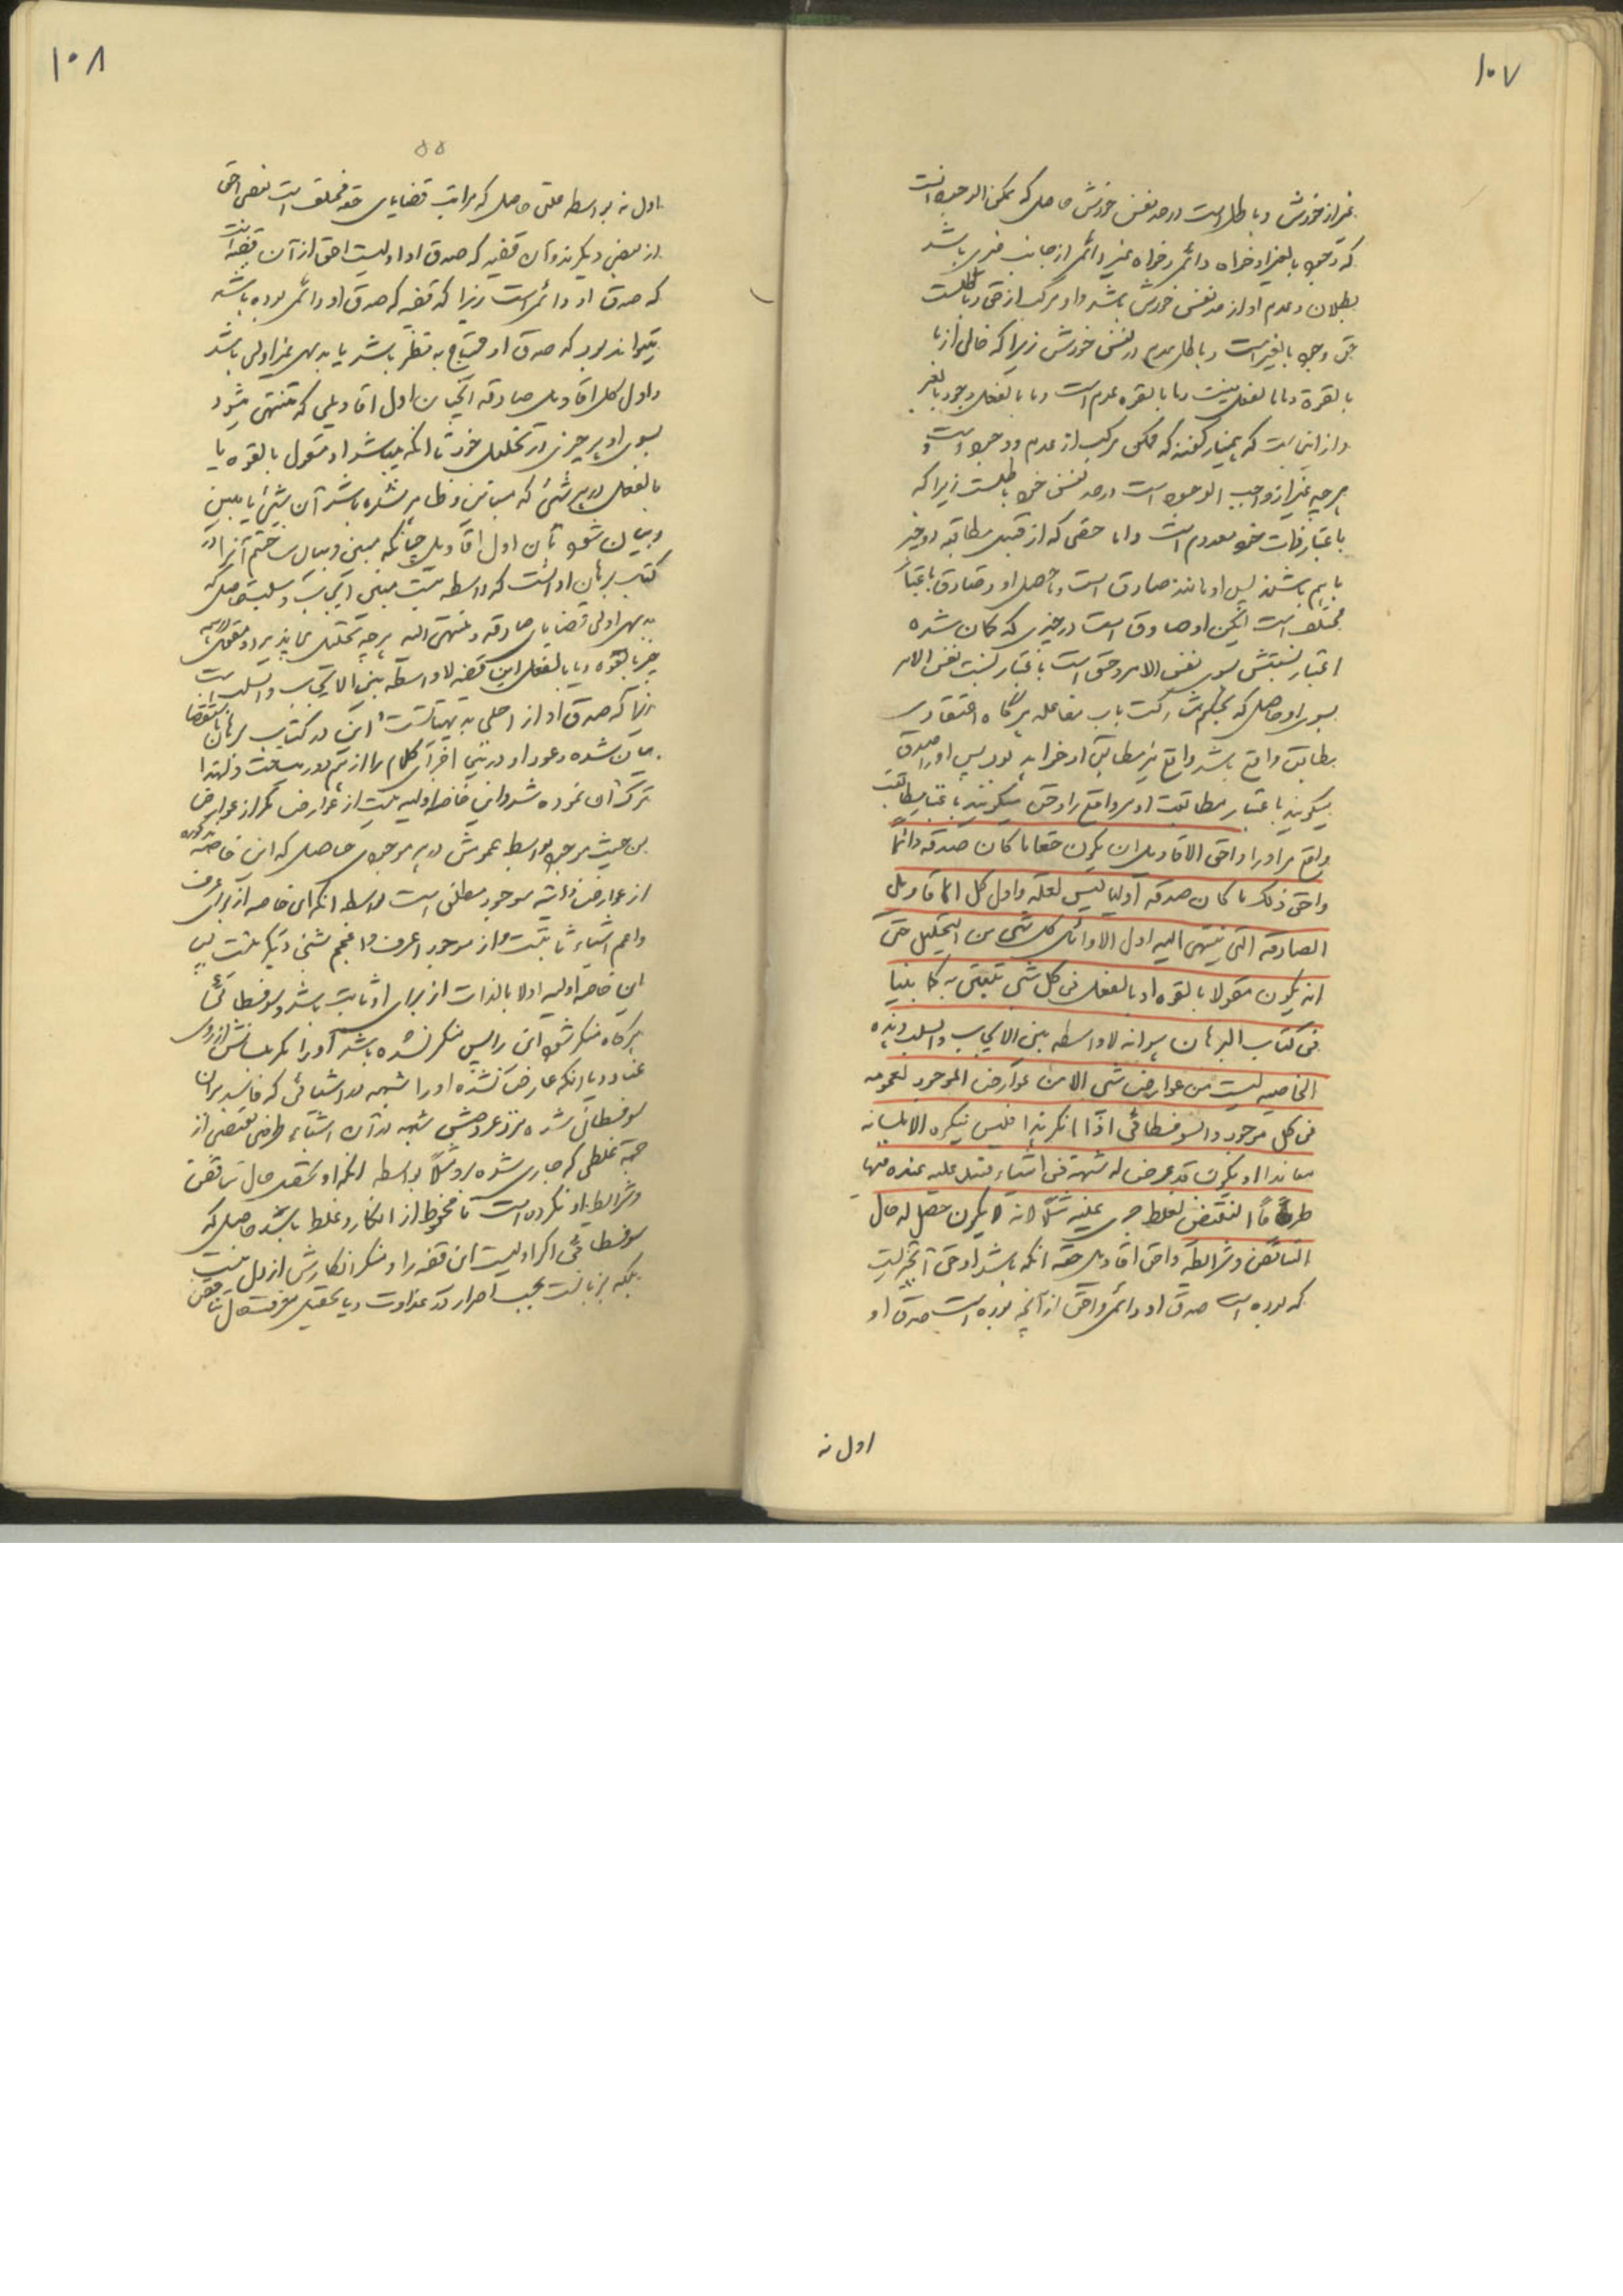 ۱۰۷
غیر از خودش و باطل است در حد نفس خودش حاصل که ممکن الوجود آنست
که وجود بالغیر او خواه دائم و خواه غیر دائم از جانب غیری باشد
بطلان و عدم او از حد نفس خودش باشد و او مرکب از حق و باطلست
حق وجود بالغیر است و باطل عدم در نفس خودش زیرا که خالی از ما
بالقوة و ما بالفعل نیست و ما بالقوه عدم است و ما بالفعل وجود بالغیر
و از این است که بهمنیار گفته که ممکن مرکب از عدم و وجود است و
هرچه غیر از واجب الوجود است در حد نفس خود باطلست زیرا که
باعتبار ذات خود معدوم است و اما حقی که از قبیل مطابقه در خبر
باهم باشند پس او مانند صادق است و ما حصل او و صادق باعتبار
مختلف است لیکن او صادق است در خبری که کان شده
اعتبار نسبتش بسوی نفس الامر و حق است باعتبار نسبت نفس الامر
بسوی او حاصل که بحکم مشارکت باب مفاعله هرگاه اعتقادی
مطابق واقع باشد واقع نیز مطابق او خواهد بود پس او را صدق
میگویند باعتبار مطابقت او مر واقع را و حق میگویند باعتبار مطابقت
واقع مر او را و احق الاقاویل ان یکون حقا ما کان صدقه دائما
و احق ذلک ما کان صدقه اولیا لیس لعلة و اول کل الاقاویل
الصادقه التی ینتهی الیه اول الاوائل کل شی من التحلیل حتی
انه یکون مقولا بالقوه او بالفعل فی کل شی یتبین به کما بینا
فی کتاب البرهان هو انه لا واسطه بین الایجاب و السلب و هذه
الخاصیه لیست من عوارض شی الا من عوارض الموجود لعمومه
فی کل موجود و السوفسطائی اذا انکر هذا فلیس ینکره الا بلسانه
معاندا او یکون قد عرض له شبهة فی اشیاء فسد علیه عنده فیها
طرفا النقیض لغلط جری علیه مثلا لانه لا یکون حصل له حال
التناقض و شرائطه و احق اقاویل حقه انکه باشد او حق آنچیزیست
که بوده است صدق او دائم و احق از آنچه بوده است صدق او
اول نه
۱۰۸
۵۵
اول نه بواسطه علتی حاصل که مراتب قضایای حقه مختلف است بعضی احق
از بعضی دیگرند و آن قضیه که صدق او اولیست احق از آن قضیه است
که صدق او دائم است زیرا که قضیه که صدق او دائم بوده باشد
میتواند بود که صدق او محتاج به نظر باشد یا بدیهی غیر اولی باشد
و اول کل اقاویل صادقه آنچنان اول اقاویلی که منتهی میشود
بسوی او هر چیزی در تحلیل خود تا انکه میباشد او مقول بالقوه یا
بالفعل در هر شیئی که مبین و ظاهر شده باشد آن شیئی یا مبین
و بیان شود بآن اول اقاویل چنانکه مبین و بیان ساختیم آنرا در
کتاب برهان او آنست که واسطه نیست مبین ایجاب و سلب حاصل که
بدیهی اولی قضایای صادقه و منتهی الیه هرچه تحلیل می پذیرد و مقول در همه
چیز بالقوه و یا بالفعل این قضیه لا واسطه بین الایجاب و السلب است
زیرا که صدق او از اجلی بدیهیاتست و این در کتاب برهان باستقصا
بیان شده و عود او در بین اجزای کلام ما را از هم دور میساخت و لهذا
ترک آن نموده شد و این خاصه اولیه نیست از عوارض مگر از عوارض
من حیث موجود بواسطه عمومش در هر موجودی حاصل که این خاصه مذکوره
از عوارض ذاتیه موجود مطلق است بواسطه انکه این خاصه از برای اعرف
و اعم اشیاء ثابتست و از موجود اعرف و اعم شیئی دیگر نیست پس
این خاصه اولیه اولا بالذات از برای او ثابت باشد و سوفسطائی
هرگاه منکر شود این را پس منکر نشده باشد او را مگر بلسانش از روی
عناد و یا انکه عارض شده او را شبهه در اشیائی که فاسد بر آن
سوفسطائی شده نزد عروضش شبهه در آن اشیاء طرفی نقیض از
جهة غلطی که جاری شده برو مثلا بواسطه انکه او تحصیل حال تناقض
و شرایط او نکرده است تا محفوظ از انکار و غلط باشد حاصل که
سوفسطائی اگر اولیت این قضیه را منکر انکارش از دل نیست
بلکه بزبانست بحسب اصرار در عداوت و یا تحصیل معرفت حال تناقض